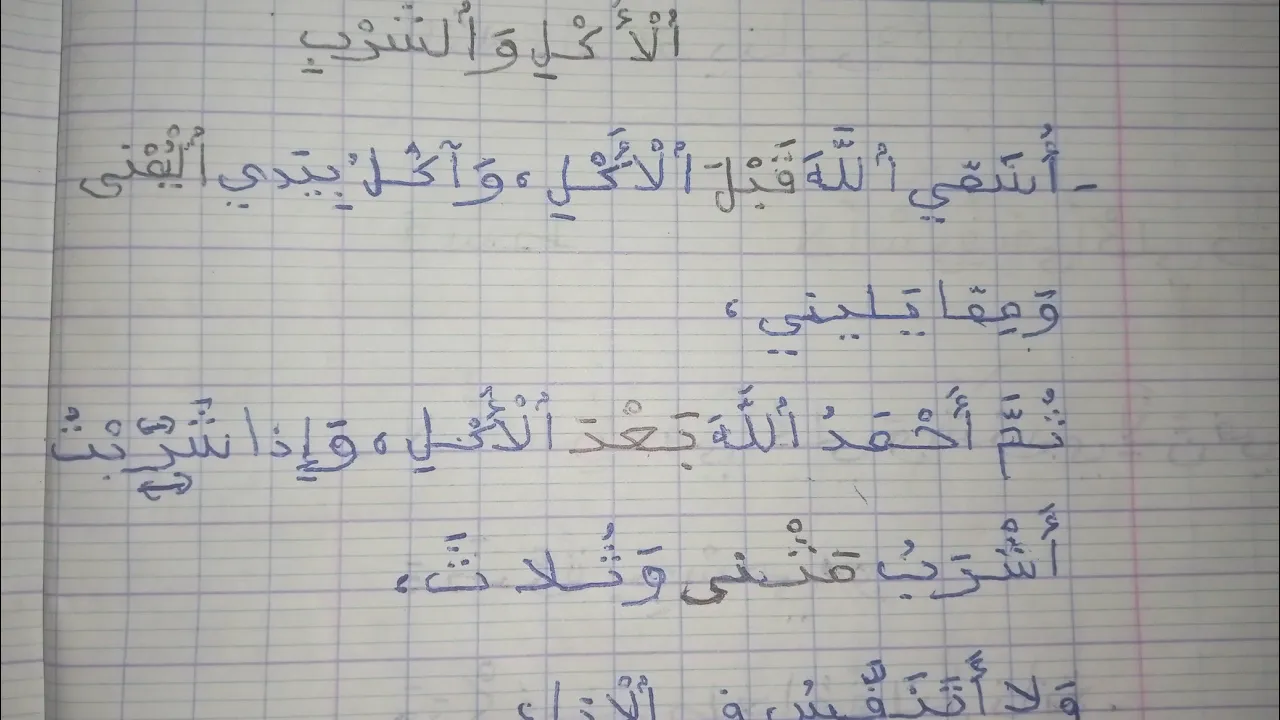 اَلْأَكْلِ وَالشُّرْبِ
- أُسَمِّي اللَّهَ قَبْلَ الْأَكْلِ، وَآكُلُ بِيَدِي الْيُمْنَى
وَمِمَّا يَلِينِي،
ثُمَّ أَحْمَدُ اللَّهَ بَعْدَ الْأَكْلِ، وَإِذَا شَرِبْتُ
أَشْرَبُ مَثْنَى وَثُلَاثَ،
وَلَا أَتَنَفَّسُ فِي الْإِنَاءِ